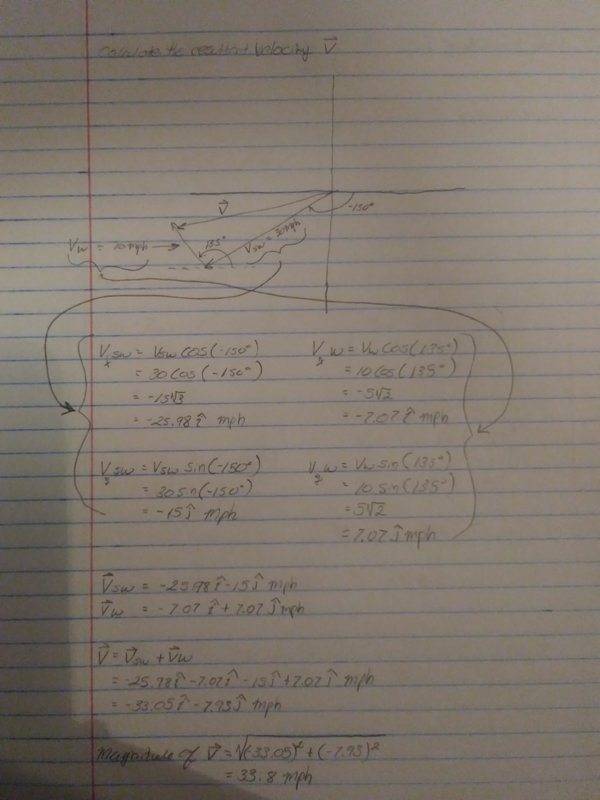 Calculate the resultant velocity V⃗
V⃗
-150°
V_w = 10mph
135°
V_sw = 30mph
V_x sw = V_sw cos(-150°)
= 30cos(-150°)
= -15√3
= -25.98 î mph
V_x w = V_w cos(135°)
= 10cos(135°)
= -5√2
= -7.07 î mph
V_y sw = V_sw sin(-150°)
= 30sin(-150°)
= -15 ĵ mph
V_y w = V_w sin(135°)
= 10 sin(135°)
= 5√2
= 7.07 ĵ mph
V⃗sw = -25.98 î -15 ĵ mph
V⃗w = -7.07 î + 7.07 ĵ mph
V⃗ = V⃗sw + V⃗w
= -25.98 î -7.07 î -15 ĵ + 7.07 ĵ mph
= -33.05 î -7.93 ĵ mph
Magnitude of V⃗ = √(33.05)² + (-7.93)²
= 33.8 mph